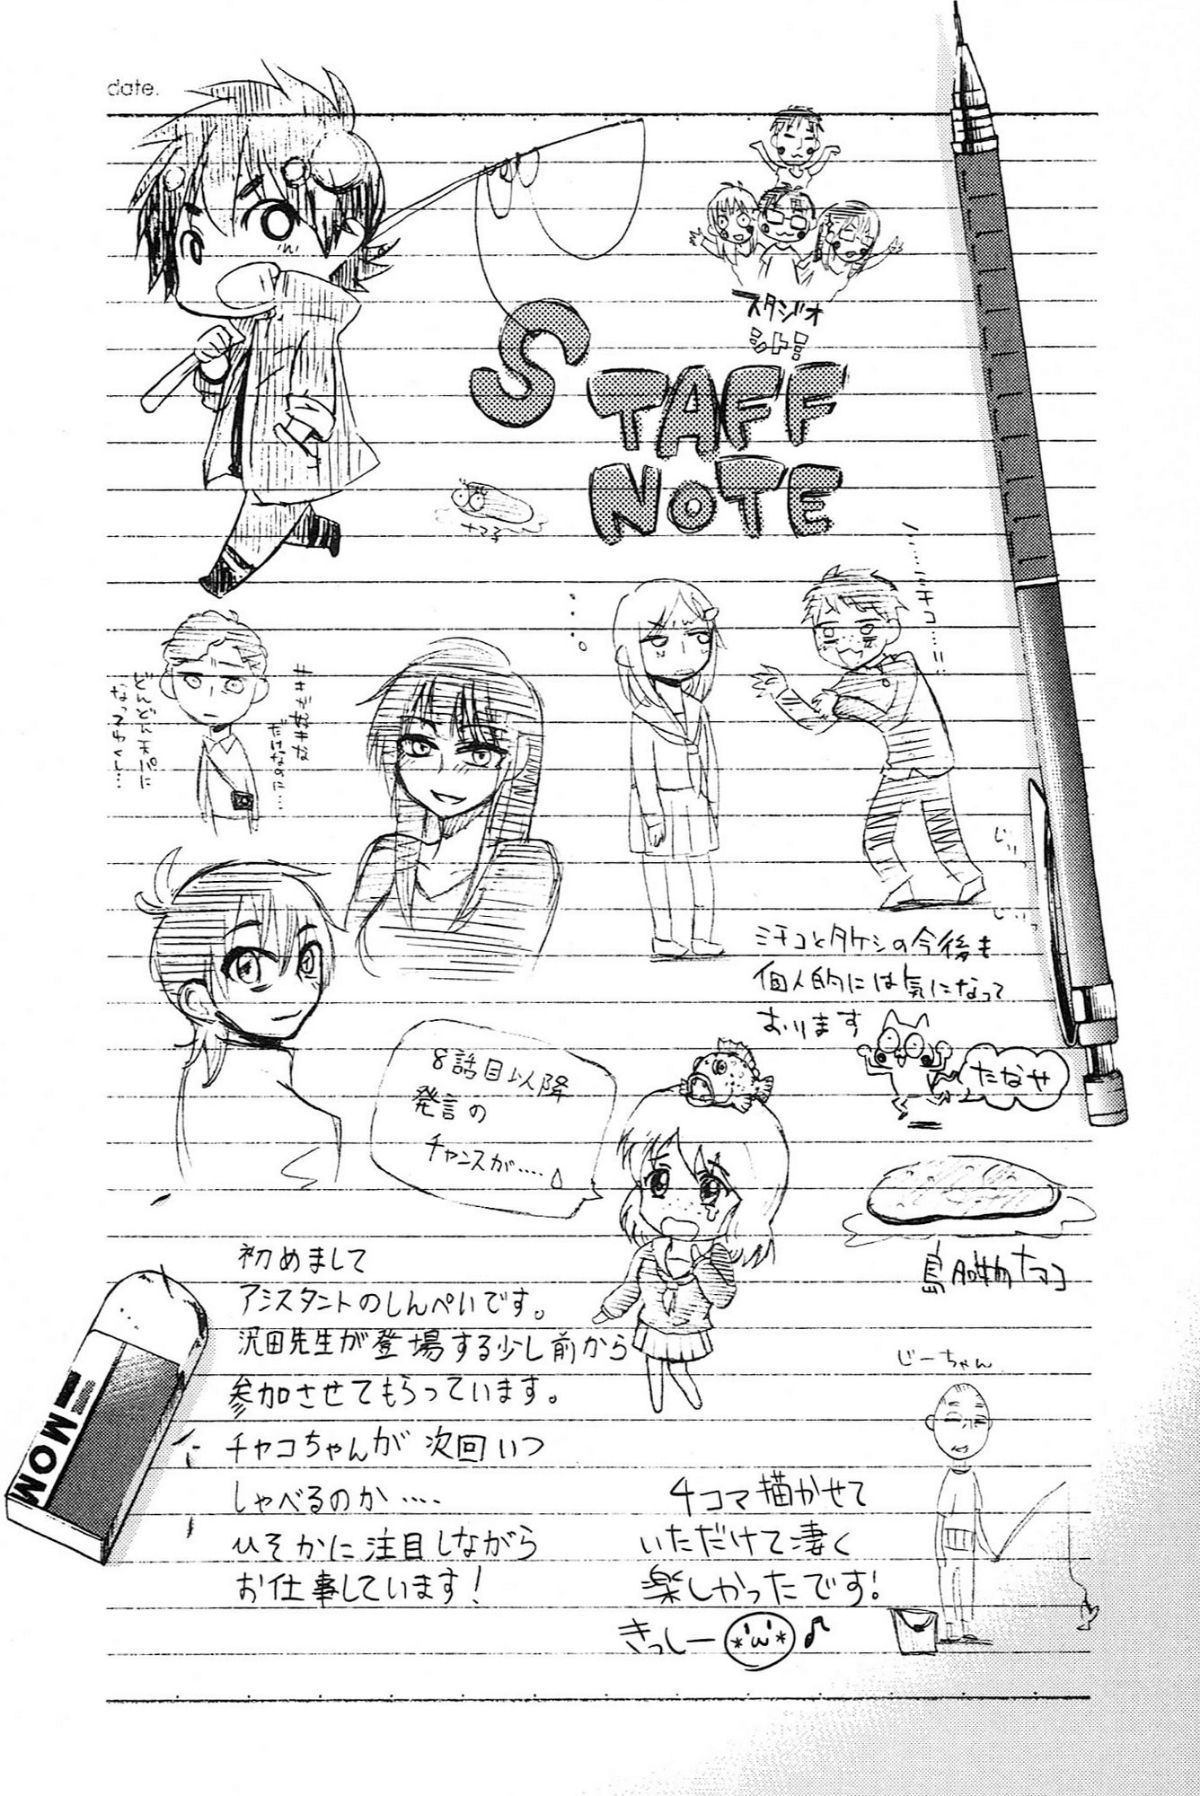 date.
スタジオ
シトミ
STAFF
NOTE
ナマ子〜
キキが好きな
だけなのに…
どんどん天パに
なってゆくん…
・・・。
ミチコ…!!
じぃ
じぃっ
ミチコとタケシの今後も
個人的には気になって
おります
たなせ
8話目以降
発言の
チャンスが….
島の
ナマコ
初めまして
アシスタントのしんぺいです。
沢田先生が登場する少し前から
参加させてもらっています。
チャコちゃんが次回いつ
しゃべるのか….
ひそかに注目しながら
お仕事しています!
MOM
じーちゃん
4コマ描かせて
いただけて凄く
楽しかったです!
きっしー ♪